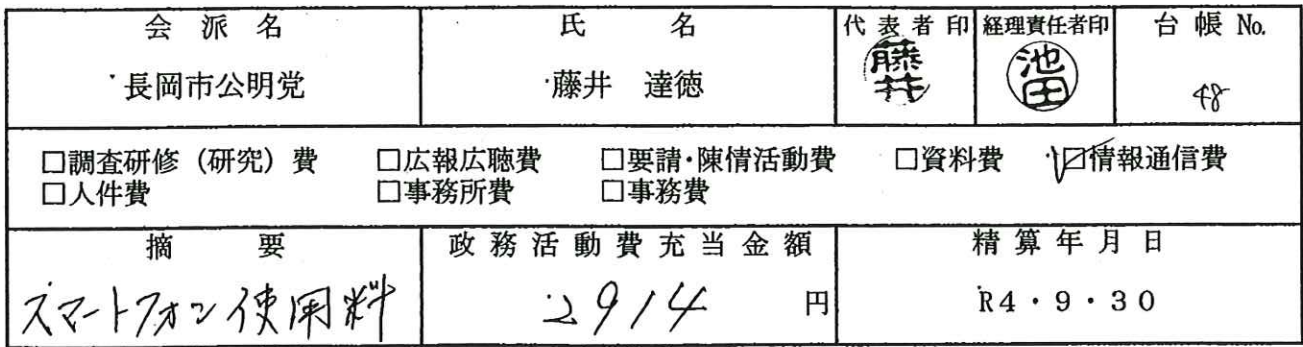 会派名 氏名 代表者印 経理責任者印 台帳 No.
長岡市公明党 藤井 達徳 藤井 池田 48
□調査研修(研究)費 □広報広聴費 □要請・陳情活動費 □資料費 ☑情報通信費
□人件費 □事務所費 □事務費
摘要 政務活動費充当金額 精算年月日
スマートフォン使用料 2914 円 R4・9・30